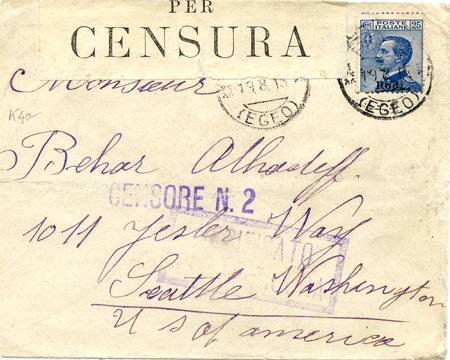 PER
CENSURA
POSTE ITALIANE 25
Rodi
19.8.15
(EGEO)
19.8
(EGEO)
Monsieur
K40
Behor Alhadeff.
CENSORE N. 2
VERIFICATO
1011 Yesler Way
Seattle Washington
U S of america